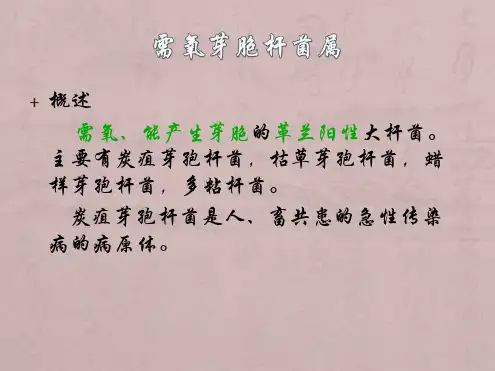 需氧芽胞杆菌属
+ 概述
需氧、能产生芽胞的革兰阳性大杆菌。
主要有炭疽芽孢杆菌，枯草芽孢杆菌，蜡
样芽孢杆菌，多粘杆菌。
炭疽芽孢杆菌是人、畜共患的急性传染
病的病原体。